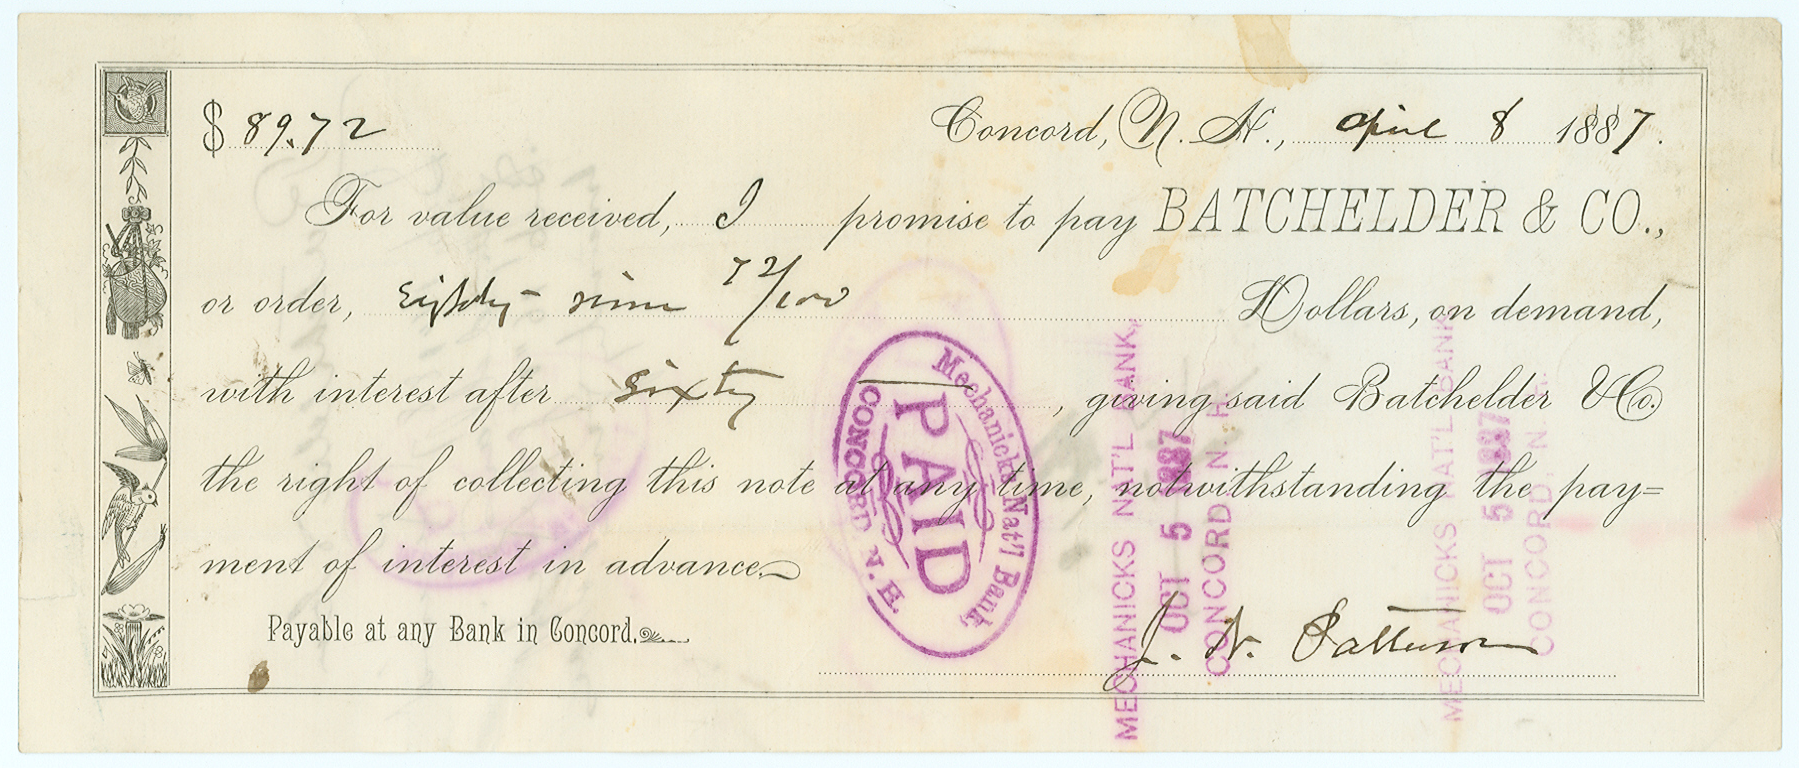 $ 89.72 Concord, N. H., April 8 1887.
For value received, I promise to pay BATCHELDER & CO.,
or order, Eighty-nine 72/100 Dollars, on demand,
with interest after sixty , giving said Batchelder & Co.
the right of collecting this note at any time, notwithstanding the pay=
ment of interest in advance.
Payable at any Bank in Concord.
J. W. Patterson
Mechanicks Nat'l Bank,
PAID
CONCORD N. H.
MECHANICKS NAT'L BANK,
OCT 5 1887
CONCORD, N. H.
MECHANICKS NAT'L BANK
OCT 5 1887
CONCORD, N. H.